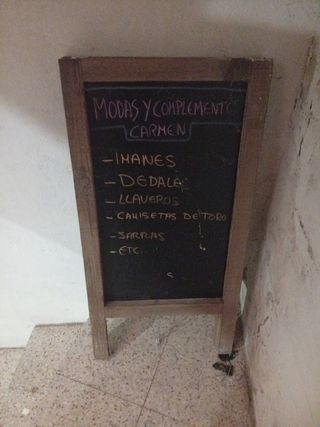 MODAS Y COMPLEMENT
CARMEN
- IMANES
- DEDALES
- LLAVEROS
- CAMISETAS DE TORO
- JARRAS
- ETC